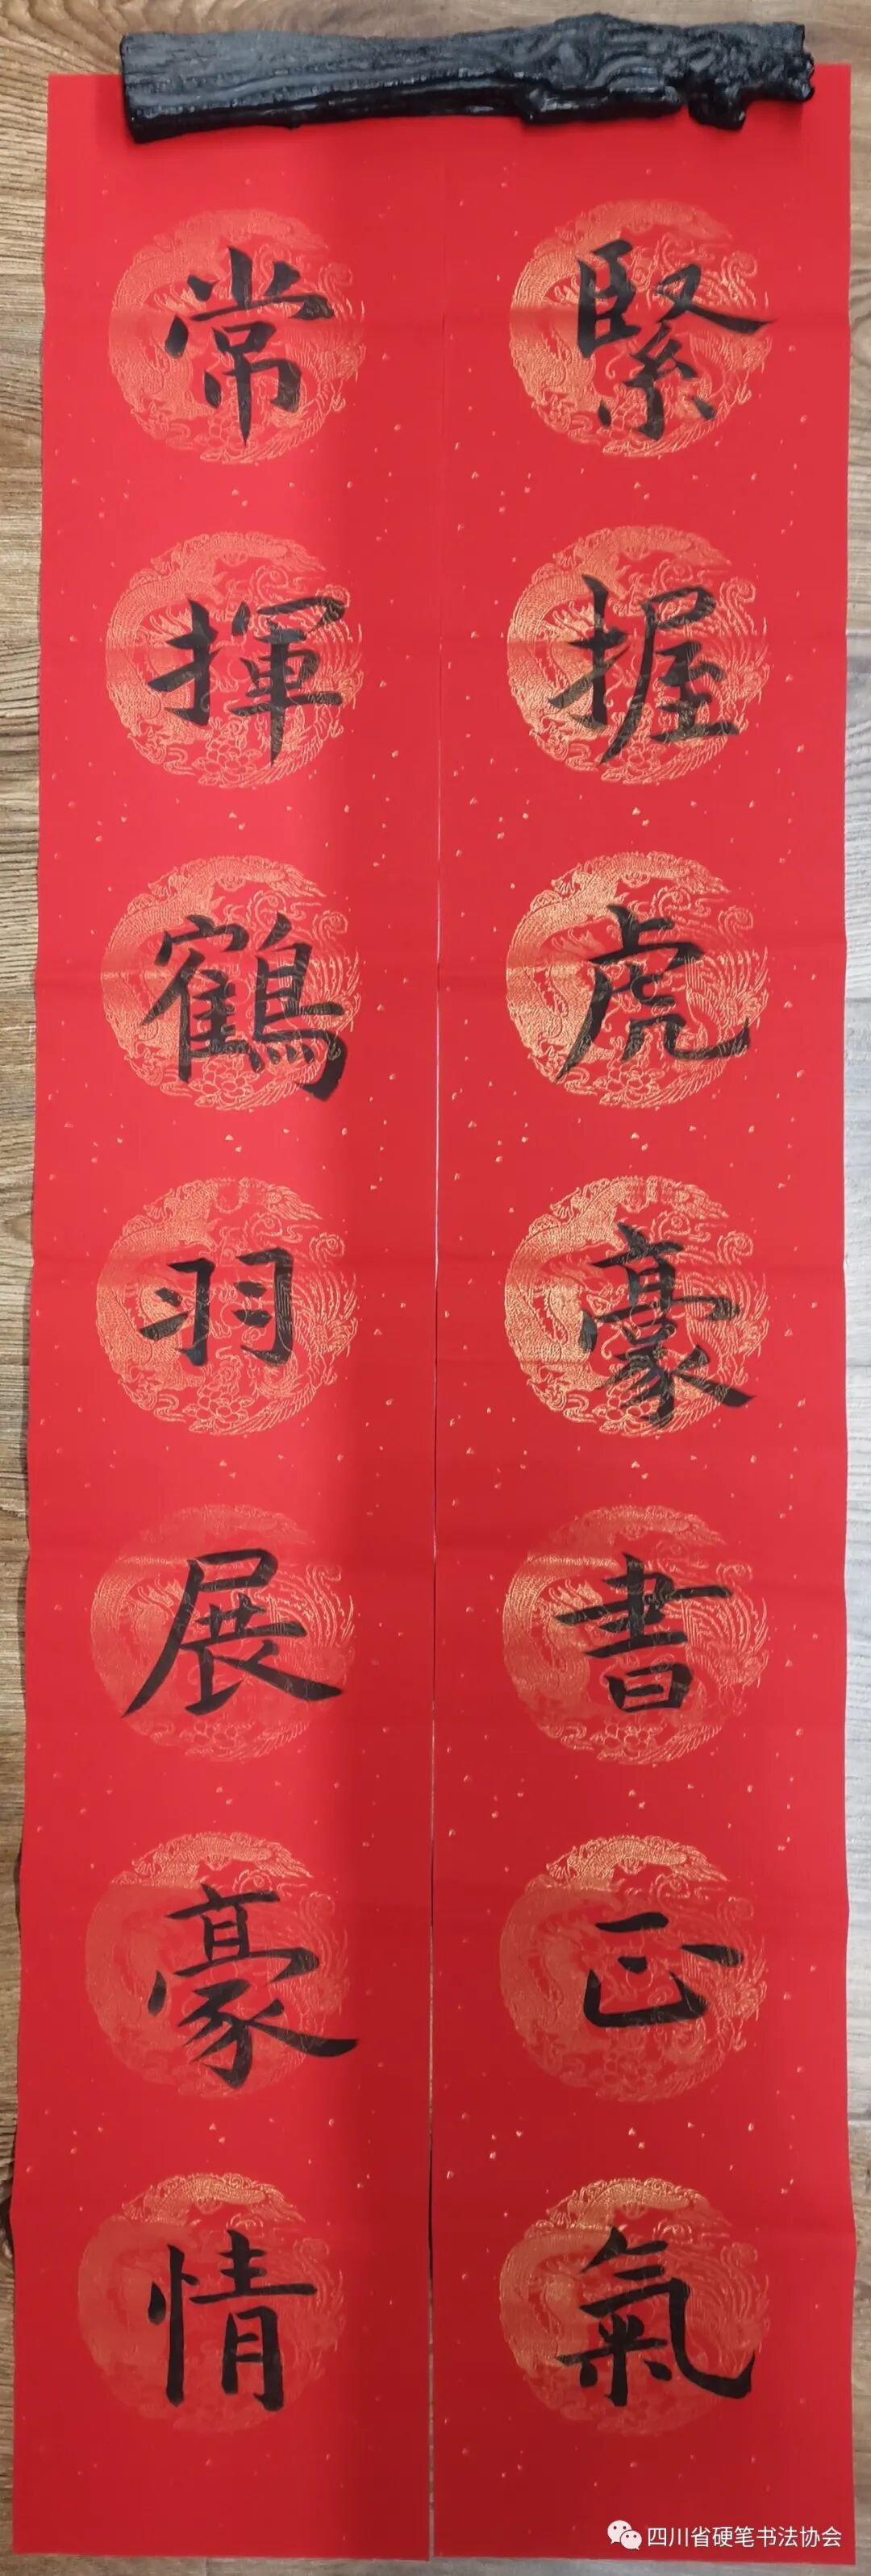 緊握虎豪書正氣
常揮鶴羽展豪情
四川省硬笔书法协会